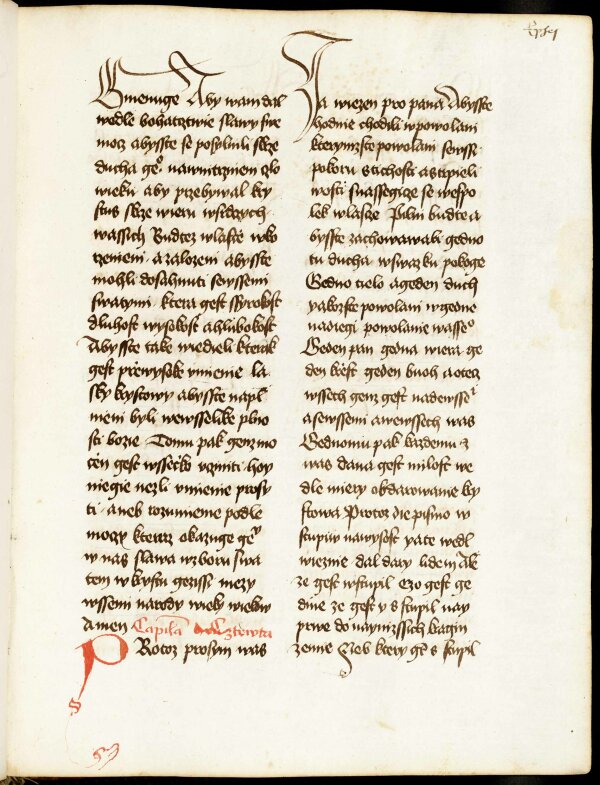 Gmenuge Aby wam dal
wedle bohatzstwie slawy swe
motz abysste se posylnili skrze
ducha geho nawnitrznem czlo
wieku aby przebywal kry
stus skrze wieru wsrdczych
wassich Budtez wlastie wko
rzenieni a zalozeni abysste
mohli dosahnuti sewssemi
swatymi ktera gest ssyrokost
dluhost wysokost a hlubokost
Abysste take wiedieli kterak
gest przewysoke vmienie la
sky krystowy abysste napl
nieni byli wewsselike plno
sti bozie Tomu pak genz mo
cen gest wssecko vczniti hoy
niegie nezli vmienie prosy
ti aneb rozumienie podle
moczy kteraz okazuge gest
w nas slawa w zboru swa
tem w krystu gezissi mezy
wssemi narody wiek wiekuow
Amen Capitula Cztwrta
Protoz prosym was
Ja wiezen pro pana Abysste
hodnie chodili w powolani
kterymzste powolani sewssi
pokoru stichosti a strpieli
wosti snassegicze se wespo
lek w lasce Pilni budte a
bysste zachowawali gedno
tu ducha w swazku pokoge
Gedno tielo a geden duch
yakozste powolani w gedne
nadiegi powolanie wasseho
Geden pan gedna wiera ge
den krzest geden buoh a otecz
wssech genz gest nadewssemi
a sewssemi a wewssech was
Gednomu pak kazdemu z
was dana gest milost we
dle miery obdarowanie kry
stowa Protoz die pismo w
stupiw na wysost yate wedl
wieznie dal dary lidem Ale
ze gest wstupil Czo gest ge
dine ze gest y sstupil nay
prwe do naynizssich kragin
zemie Neb ktery gest sstupil